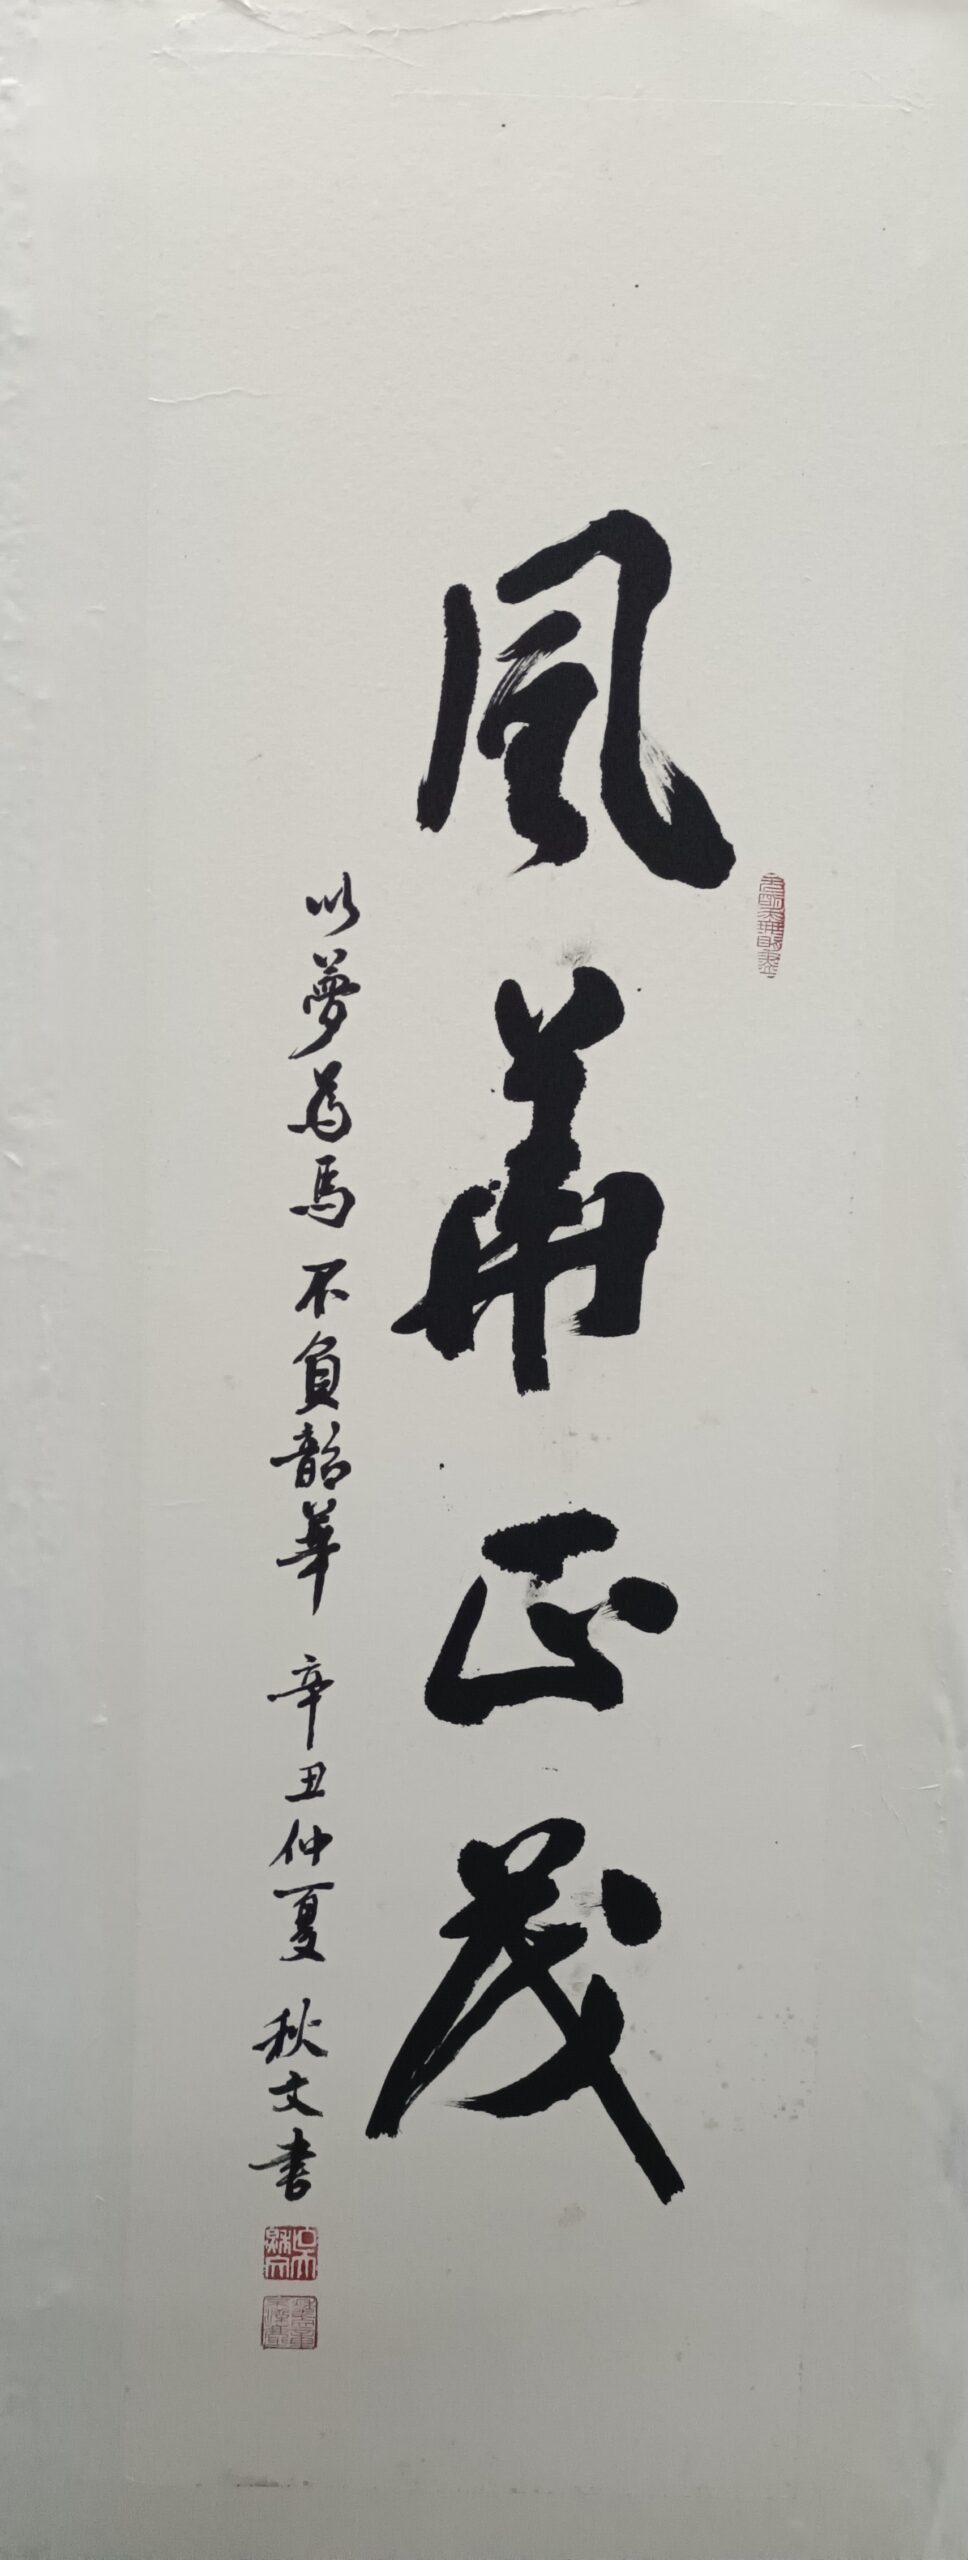 風華正茂
以夢為馬 不負韶華 辛丑仲夏 秋文書